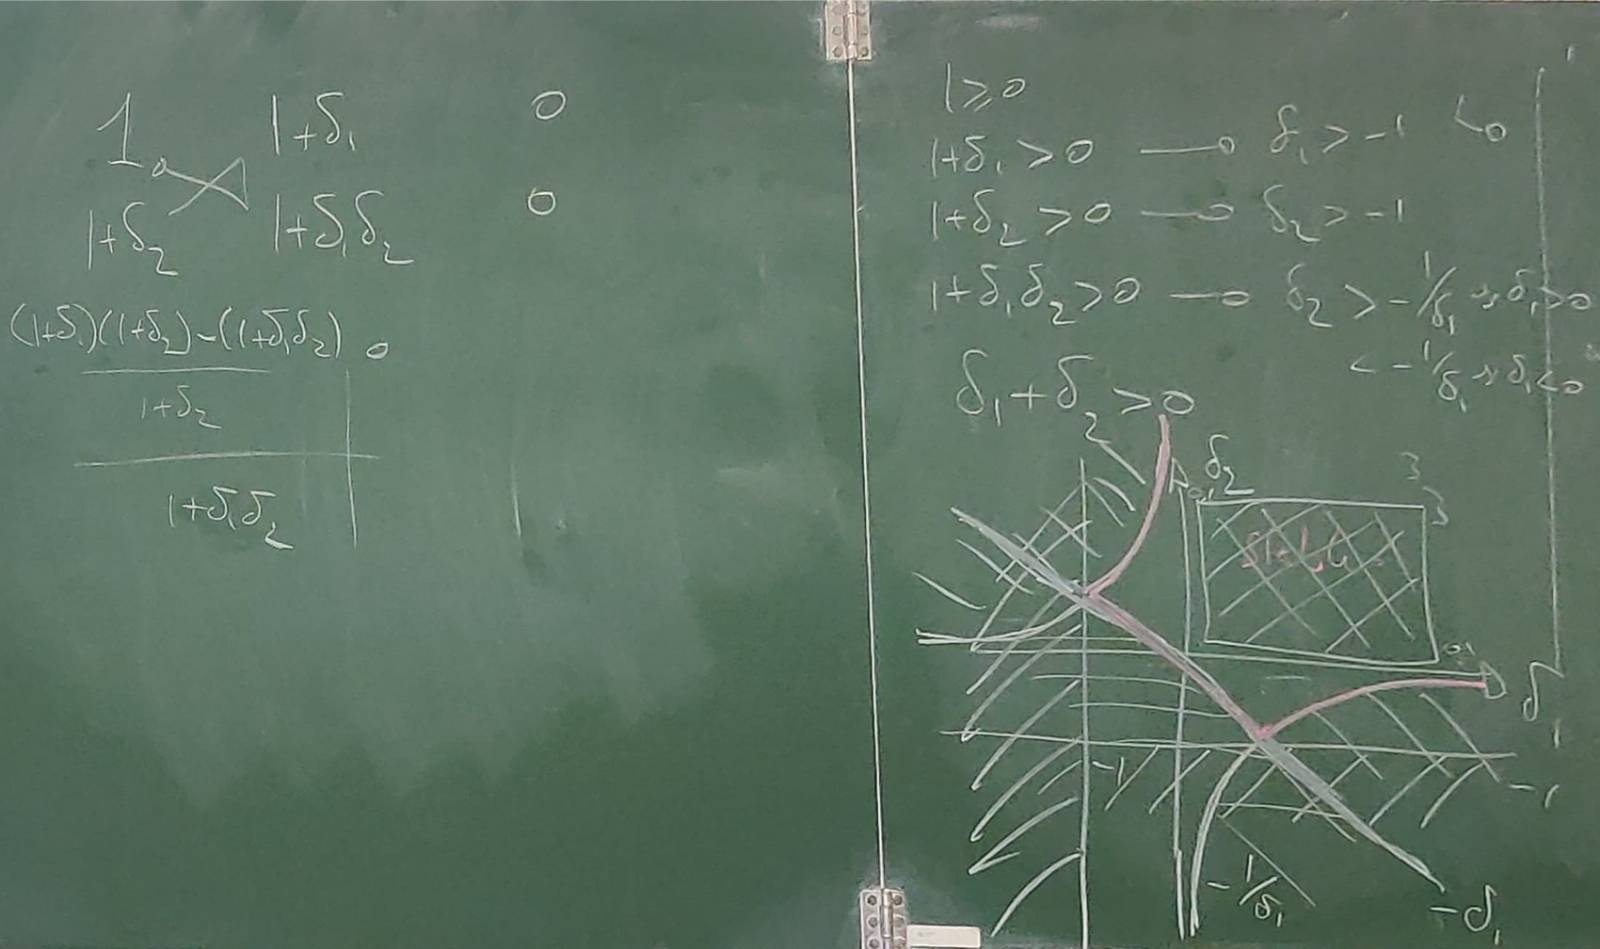 1 1+δ₁ 0
1+δ₂ 1+δ₁δ₂ 0
(1+δ₁)(1+δ₂)-(1+δ₁δ₂) 0
1+δ₂
1+δ₁δ₂
1≥0
1+δ₁>0 → δ₁>-1
1+δ₂>0 → δ₂>-1
1+δ₁δ₂>0 → δ₂>-1/δ₁ δ₁>0
<-1/δ₁ δ₁<0
δ₁+δ₂>0
δ₂
3
3
δ₁
-1
-1
-1/δ₁
-δ₁